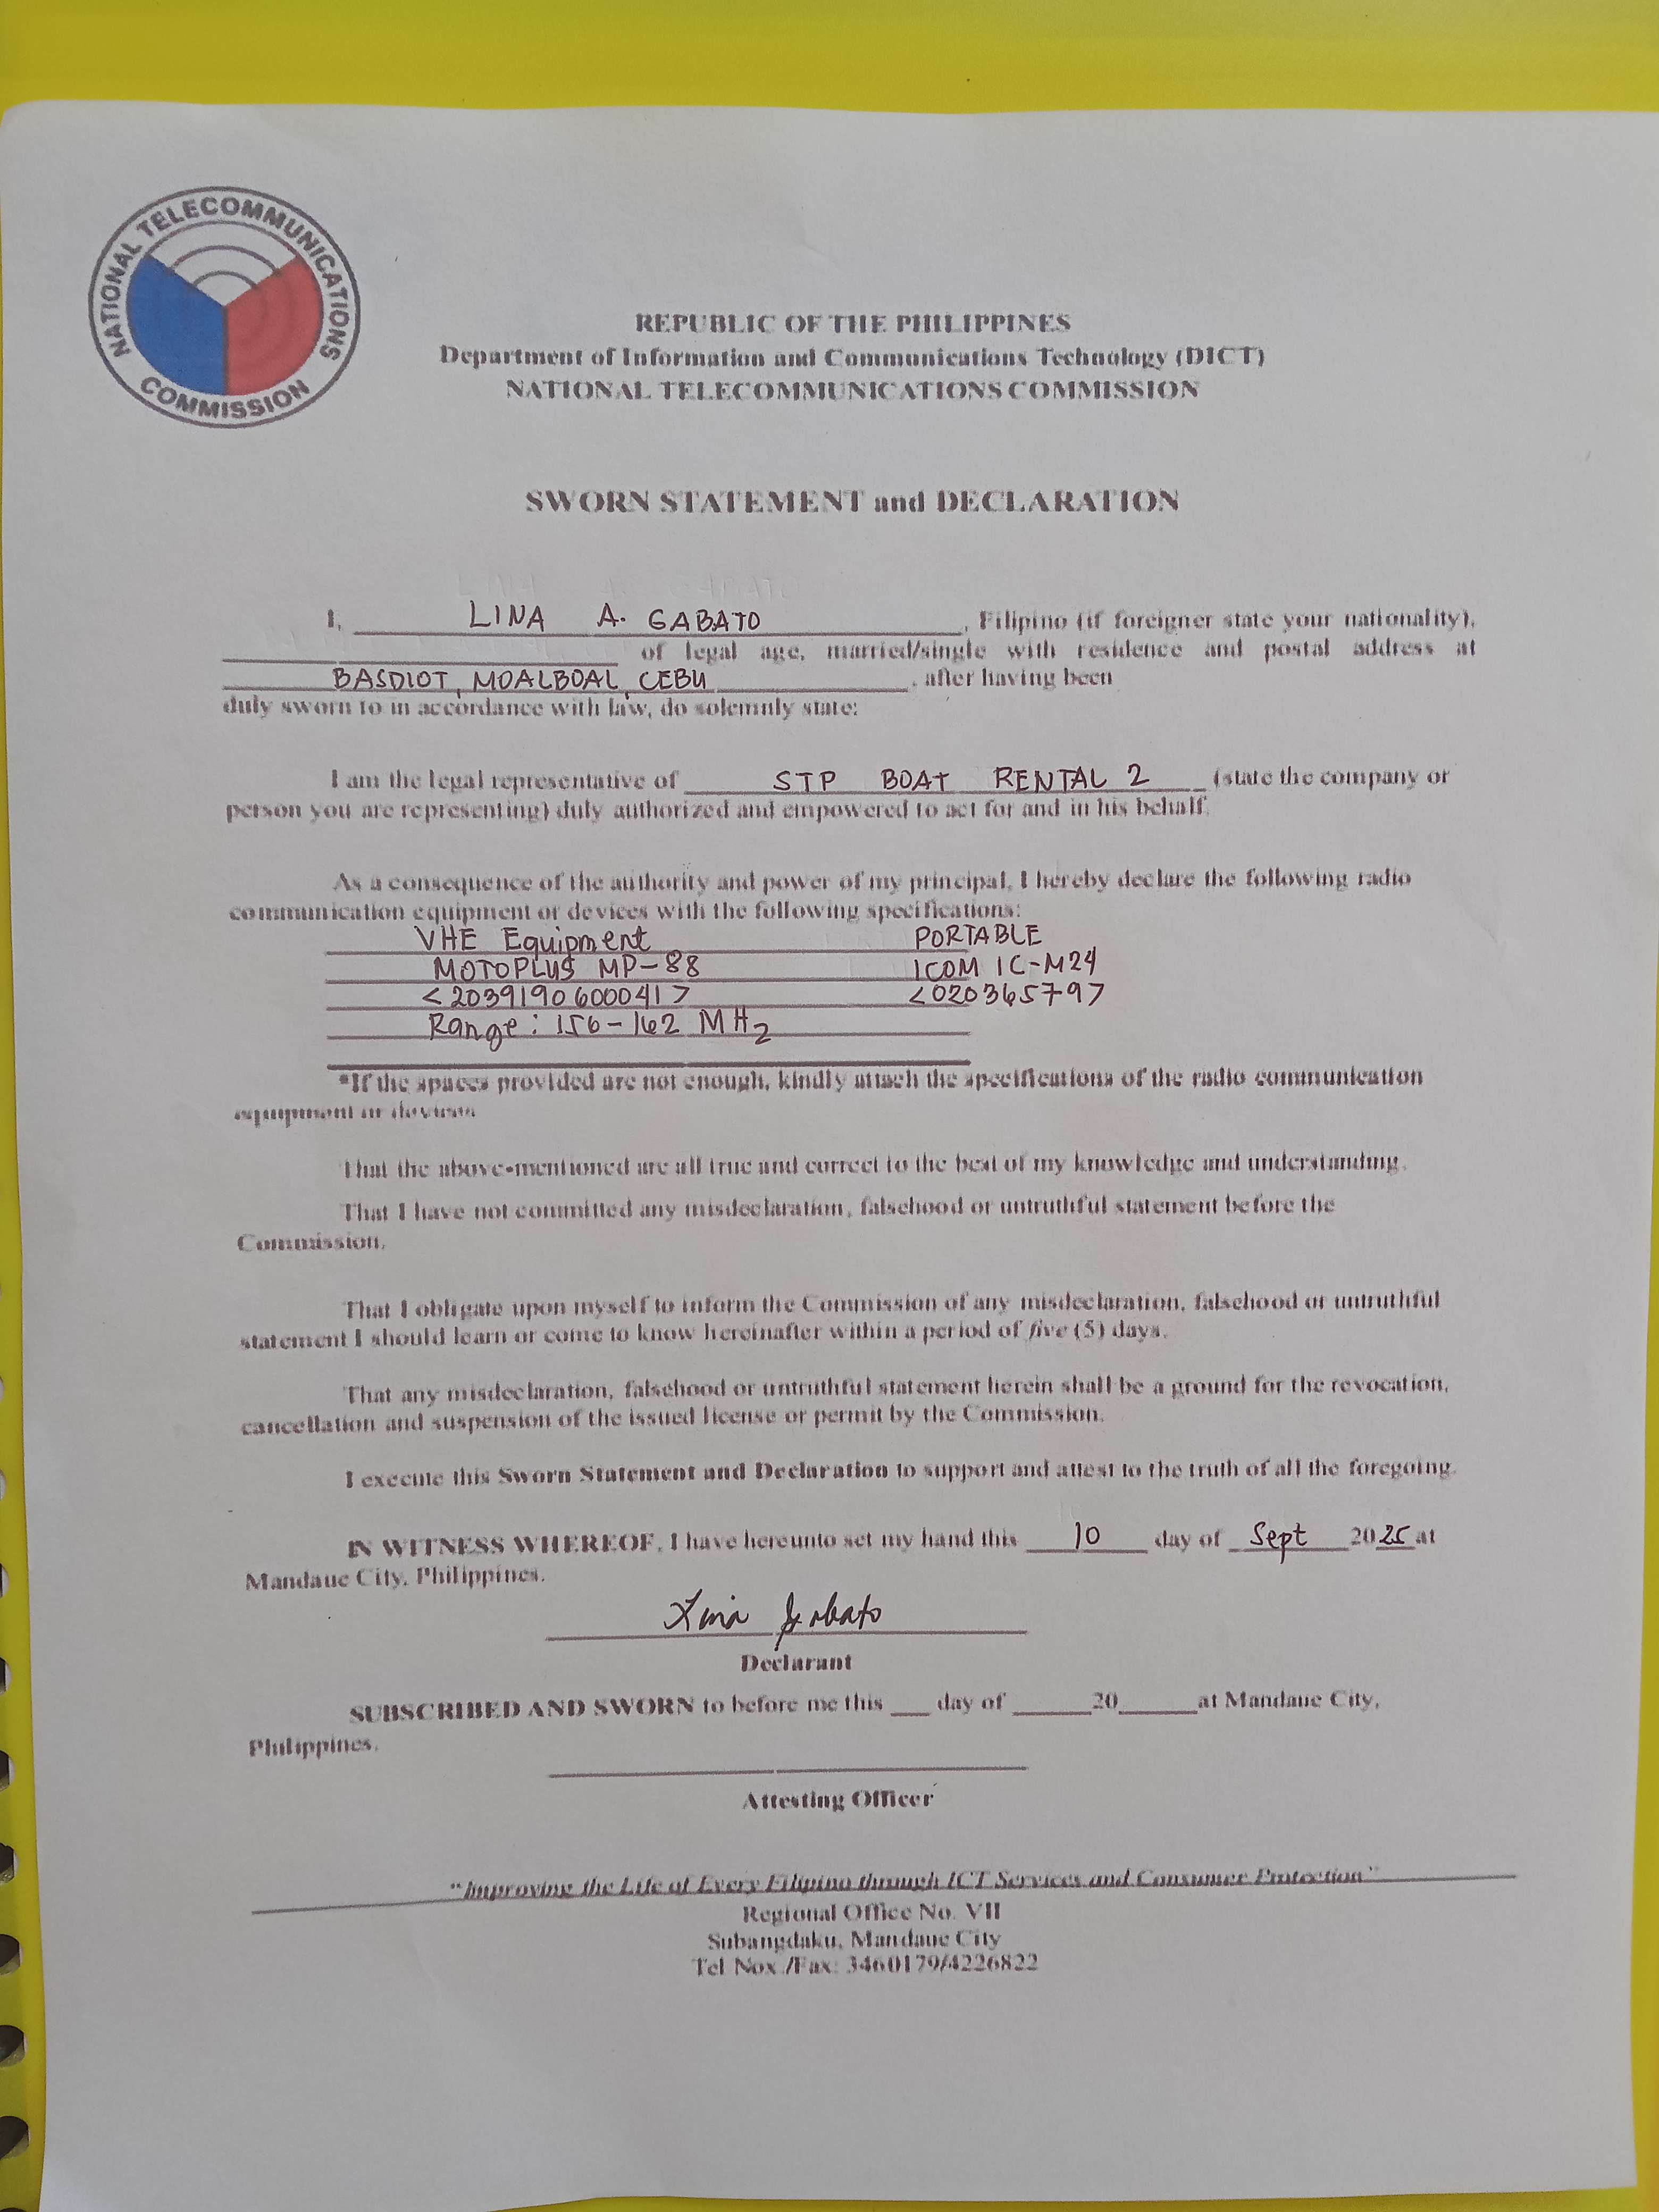 NATIONAL TELECOMMUNICATIONS COMMISSION
REPUBLIC OF THE PHILIPPINES
Department of Information and Communications Technology (DICT)
NATIONAL TELECOMMUNICATIONS COMMISSION
SWORN STATEMENT and DECLARATION
I, LINA A. GABATO, Filipino (if foreigner state your nationality),
of legal age, married/single with residence and postal address at
BASDIOT, MOALBOAL, CEBU, after having been
duly sworn to in accordance with law, do solemnly state:
I am the legal representative of STP BOAT RENTAL 2 (state the company or
person you are representing) duly authorized and empowered to act for and in his behalf.
As a consequence of the authority and power of my principal, I hereby declare the following radio
communication equipment or devices with the following specifications:
VHE Equipment PORTABLE
MOTOPLUS MP-88 ICOM IC-M24
<20391906000041> <020365797
Range: 156-162 MHz
*If the spaces provided are not enough, kindly attach the specifications of the radio communication
equipment or devices
That the above-mentioned are all true and correct to the best of my knowledge and understanding.
That I have not committed any misdeclaration, falsehood or untruthful statement before the
Commission.
That I obligate upon myself to inform the Commission of any misdeclaration, falsehood or untruthful
statement I should learn or come to know hereinafter within a period of five (5) days.
That any misdeclaration, falsehood or untruthful statement herein shall be a ground for the revocation,
cancellation and suspension of the issued license or permit by the Commission.
I execute this Sworn Statement and Declaration to support and attest to the truth of all the foregoing.
IN WITNESS WHEREOF, I have hereunto set my hand this 10 day of Sept 2025 at
Mandaue City, Philippines.
Lina Gabato
Declarant
SUBSCRIBED AND SWORN to before me this ___ day of ______20______at Mandaue City,
Philippines.
Attesting Officer
"Improving the Life of Every Filipino through ICT Services and Consumer Protection"
Regional Office No. VII
Subangdaku, Mandaue City
Tel Nox./Fax: 3460179/4226822